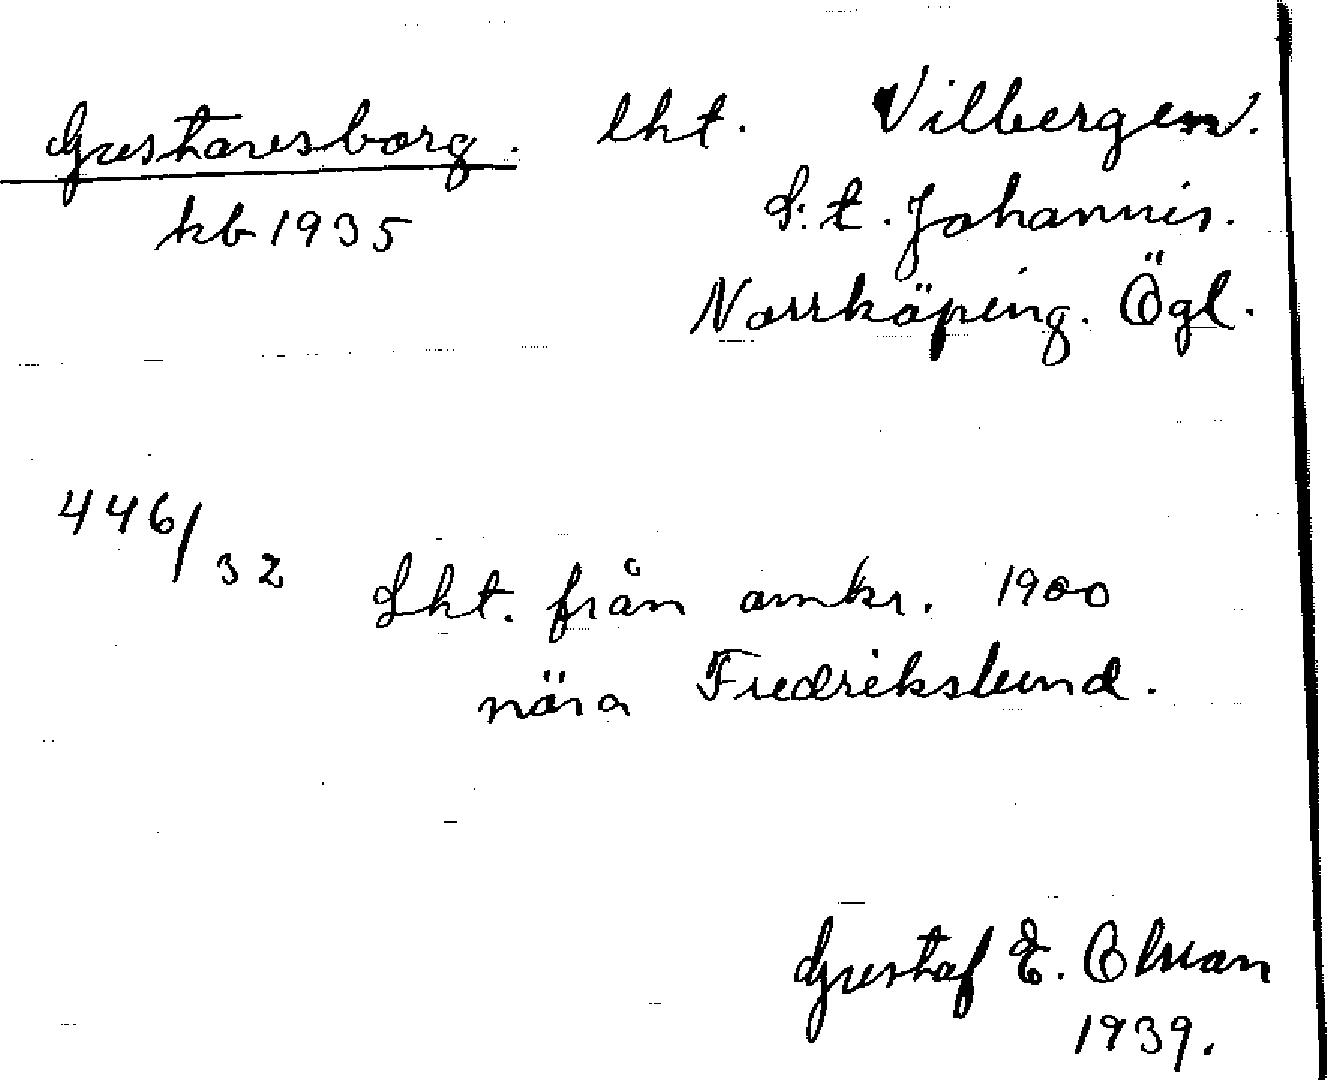 Gustavsborg. lht. Vilbergen.
kb 1935 S:t. Johannis.
Norrköping. Ögl.
446/32 Lht. från omkr. 1900
nära Fredrikslund.
Gustaf E. Olsson
1939.